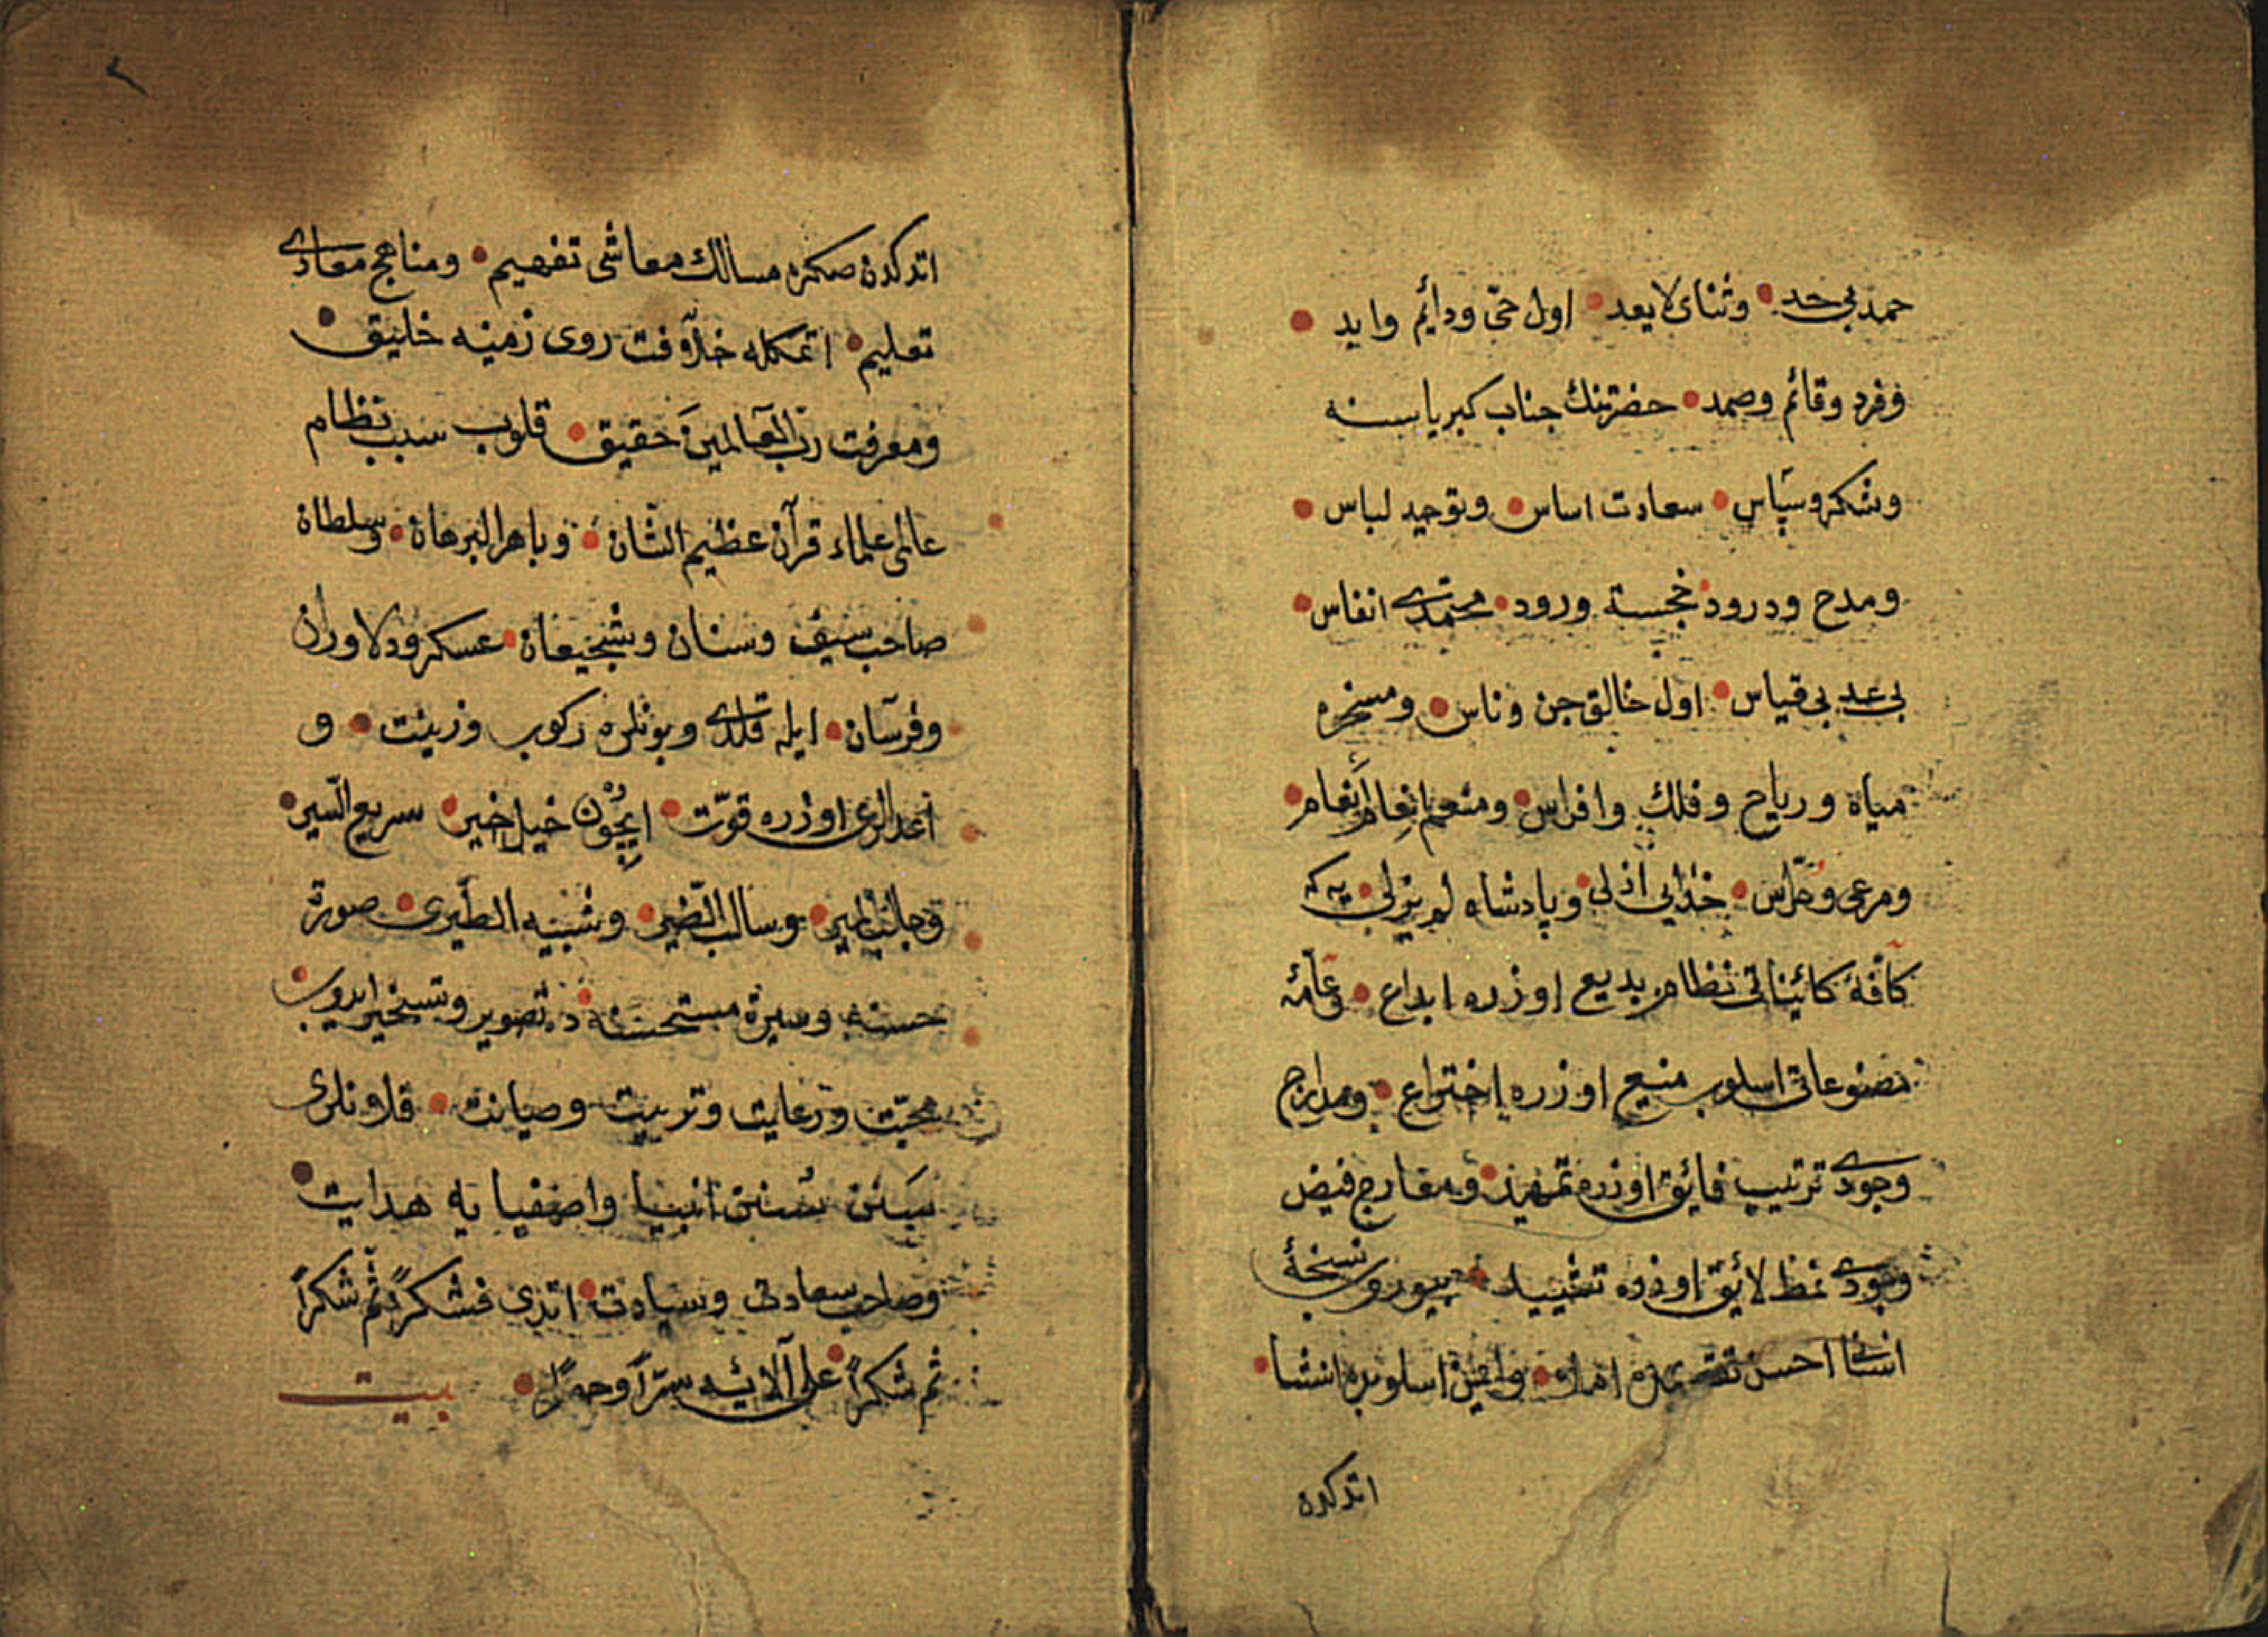 حمد بی حد • وثنای لا یعد • اول حیّ ودایٔم وابد •
وفرد وقائم وصمد • حضرتنك جناب كبریا سنه
وشكر وسپاس • سعادت اساس • وتوحید لباس •
ومدح ودرود خجسته ورود • محمّدی انفاس •
بی عد بی قیاس • اول خالق جن وناس • ومسخره
میاه وریاح وفلك وافراس • ومنعم انعام أنعام •
ومرعی • خدایی ازلی • وپادشاه لم یزلی • كه
كافّۀ كائیناتی نظام بدیع اوزره ابداع • وعامّۀ
مصنوعاتی اسلوب منیع اوزره إختراع • ومدارج
وجودی ترتیب فایٔق اوزره تمهید • ومعارج فیض
وجودی نمط لایٔق اوزره تشیید • بیوروب نسخۀ
انسانی احسن املا • اسلوبده انشا •
اتدكده
اتدكدن صكره مسالك معاشی تفهیم • ومناهج معادی
تعلیم • اتمكله خلافت روی زمینه خلیق •
ومعرفت ربّ العالمینَ حقیق • قلوب سبب نظام
عالمی علماء قرآن عظیم الشّان • وباهر البرهان • وسلطان
صاحب سیف وسنان وشجیعان • عسكر ودلاوران
وفرسان • ایله قلدی وبونلره ركوب وزینت • و
اعدالری اوزره قوّت • ایچون خیل خیر • سریع السّیر •
وجالب المیر • وسالب الضّیر • وشبیه الطّیری • صورة
حسنه وسیرة مستحسنه ده • تصویر وتسخیر ایدوب •
محبّت ورعایت وتربیت وصیانت • قلاونلری
سَنن سُنن انبیا واصفیا یه هدایت •
وصاحب سعادتی وسیادت • اتدی فشكراً ثم شكراً
ثم شكراً • علی آلائه سرّاً وجهراً • بیت